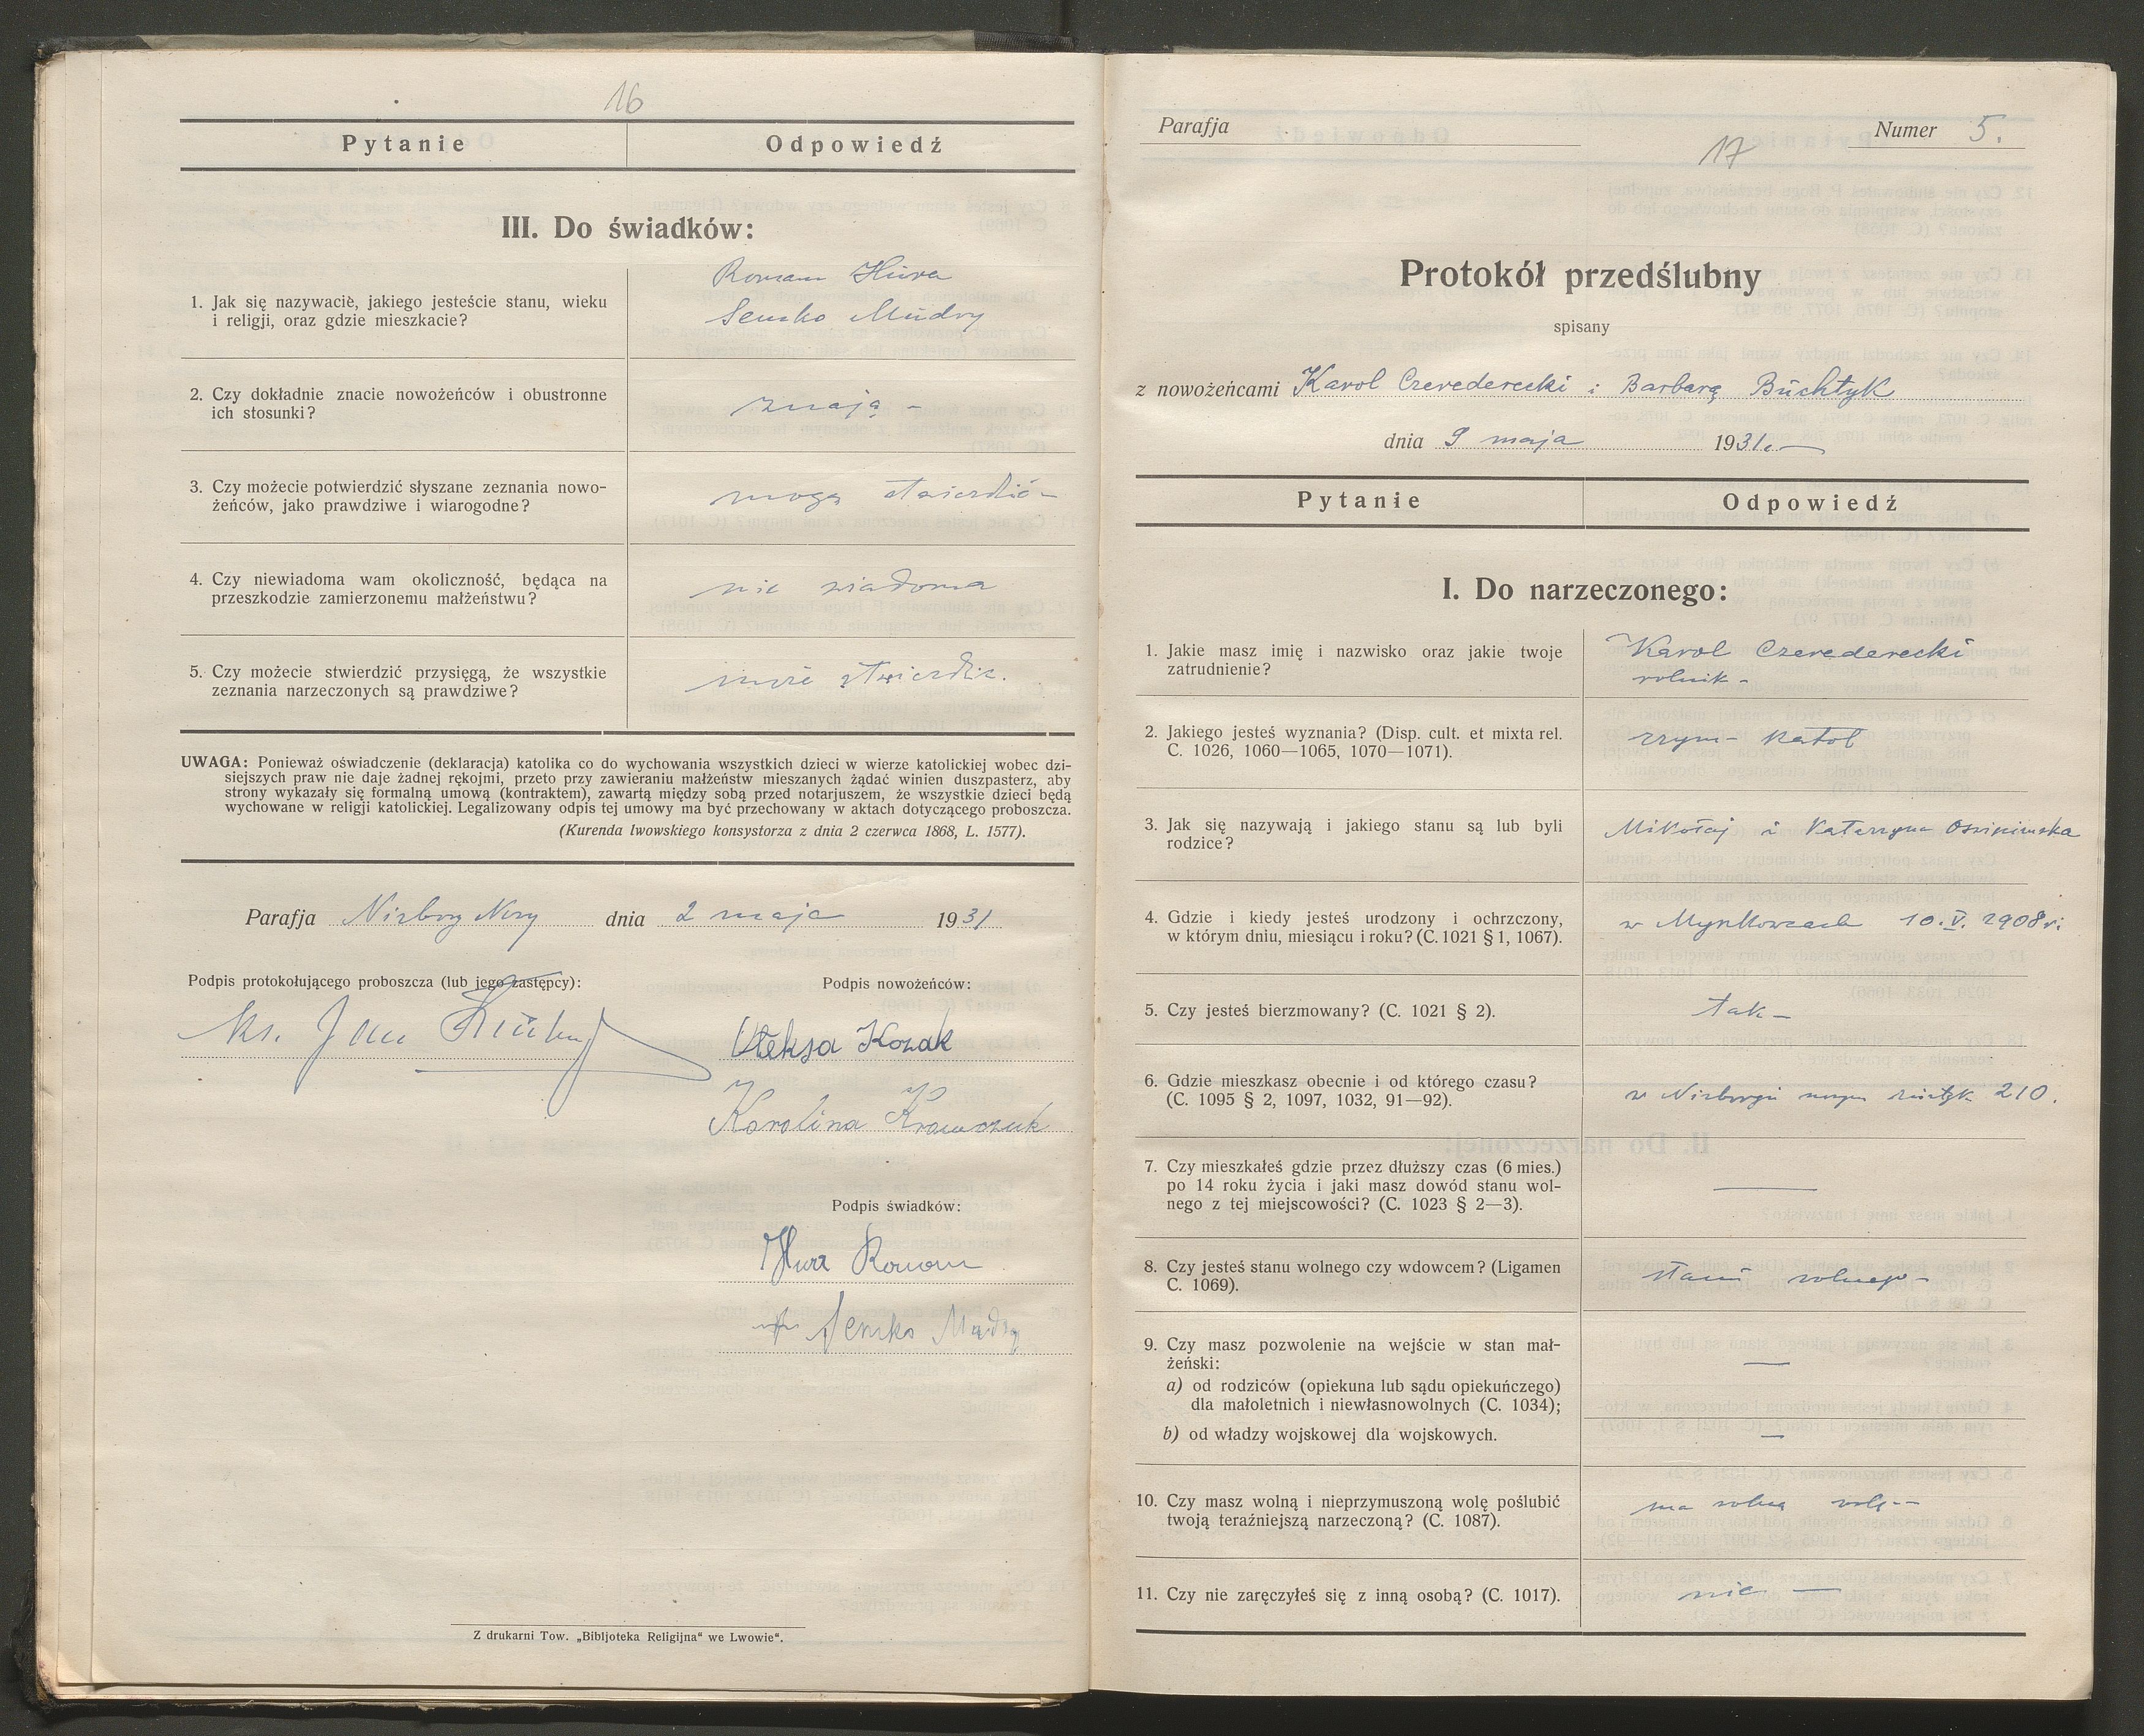 16
Pytanie
Odpowiedź
III. Do świadków:
1. Jak się nazywacie, jakiego jesteście stanu, wieku
i religji, oraz gdzie mieszkacie?
Roman Hura
Senko Mudry
2. Czy dokładnie znacie nowożeńców i obustronne
ich stosunki?
znają -
3. Czy możecie potwierdzić słyszane zeznania nowo-
żeńców, jako prawdziwe i wiarogodne?
mogą stwierdzić -
4. Czy niewiadoma wam okoliczność, będąca na
przeszkodzie zamierzonemu małżeństwu?
nie wiadoma
5. Czy możecie stwierdzić przysięgą, że wszystkie
zeznania narzeczonych są prawdziwe?
może stwierdzić.
UWAGA: Ponieważ oświadczenie (deklaracja) katolika co do wychowania wszystkich dzieci w wierze katolickiej wobec dzi-
siejszych praw nie daje żadnej rękojmi, przeto przy zawieraniu małżeństw mieszanych żądać winien duszpasterz, aby
strony wykazały się formalną umową (kontraktem), zawartą między sobą przed notarjuszem, że wszystkie dzieci będą
wychowane w religji katolickiej. Legalizowany odpis tej umowy ma być przechowany w aktach dotyczącego proboszcza.
(Kurenda lwowskiego konsystorza z dnia 2 czerwca 1868, L. 1577).
Parafja Niżborg Nowy dnia 2 maja 1931
Podpis protokołującego proboszcza (lub jego zastępcy):
Podpis nowożeńców:
Ks. Jan
Ołeksa Kozak
Karolina Krawczuk
Podpis świadków:
Hura Roman
Senko Mudry
Z drukarni Tow. „Bibljoteka Religijna“ we Lwowie“.
Parafja
Numer 5.
17
Protokół przedślubny
spisany
z nowożeńcami Karol Czerederecki i Barbarą Buchtyk
dnia 9 maja 1931.
Pytanie
Odpowiedź
I. Do narzeczonego:
1. Jakie masz imię i nazwisko oraz jakie twoje
zatrudnienie?
Karol Czerederecki
rolnik -
2. Jakiego jesteś wyznania? (Disp. cult. et mixta rel.
C. 1026, 1060—1065, 1070—1071).
rzym- katol
3. Jak się nazywają i jakiego stanu są lub byli
rodzice?
Mikołaj i Katarzyna
4. Gdzie i kiedy jesteś urodzony i ochrzczony,
w którym dniu, miesiącu i roku? (C. 1021 § 1, 1067).
w 10.V. 1908 r.
5. Czy jesteś bierzmowany? (C. 1021 § 2).
tak -
6. Gdzie mieszkasz obecnie i od którego czasu?
(C. 1095 § 2, 1097, 1032, 91—92).
w Niżborgu nowym 210.
7. Czy mieszkałeś gdzie przez dłuższy czas (6 mies.)
po 14 roku życia i jaki masz dowód stanu wol-
nego z tej miejscowości? (C. 1023 § 2—3).
—
8. Czy jesteś stanu wolnego czy wdowcem? (Ligamen
C. 1069).
stanu wolnego -
9. Czy masz pozwolenie na wejście w stan mał-
żeński:
—
a) od rodziców (opiekuna lub sądu opiekuńczego)
dla małoletnich i niewłasnowolnych (C. 1034);
b) od władzy wojskowej dla wojskowych.
—
10. Czy masz wolną i nieprzymuszoną wolę poślubić
twoją teraźniejszą narzeczoną? (C. 1087).
ma wolną wolę -
11. Czy nie zaręczyłeś się z inną osobą? (C. 1017).
nie —